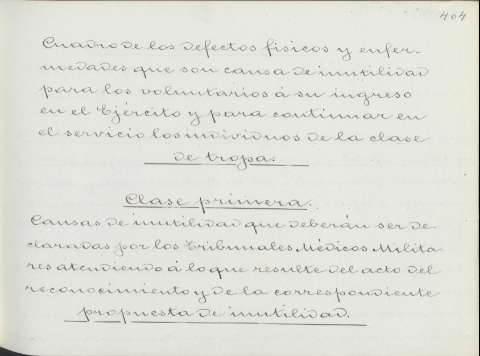 404
Cuadro de los defectos físicos y enfer-
medades que son causa de inutilidad
para los voluntarios á su ingreso
en el Ejército y para continuar en
el servicio los individuos de la clase
de tropa.
Clase primera.
Causas de inutilidad que deberán ser de-
claradas por los Tribunales Médicos Milita-
res atendiendo á lo que resulte del acto del
reconocimiento y de la correspondiente
propuesta de inutilidad.